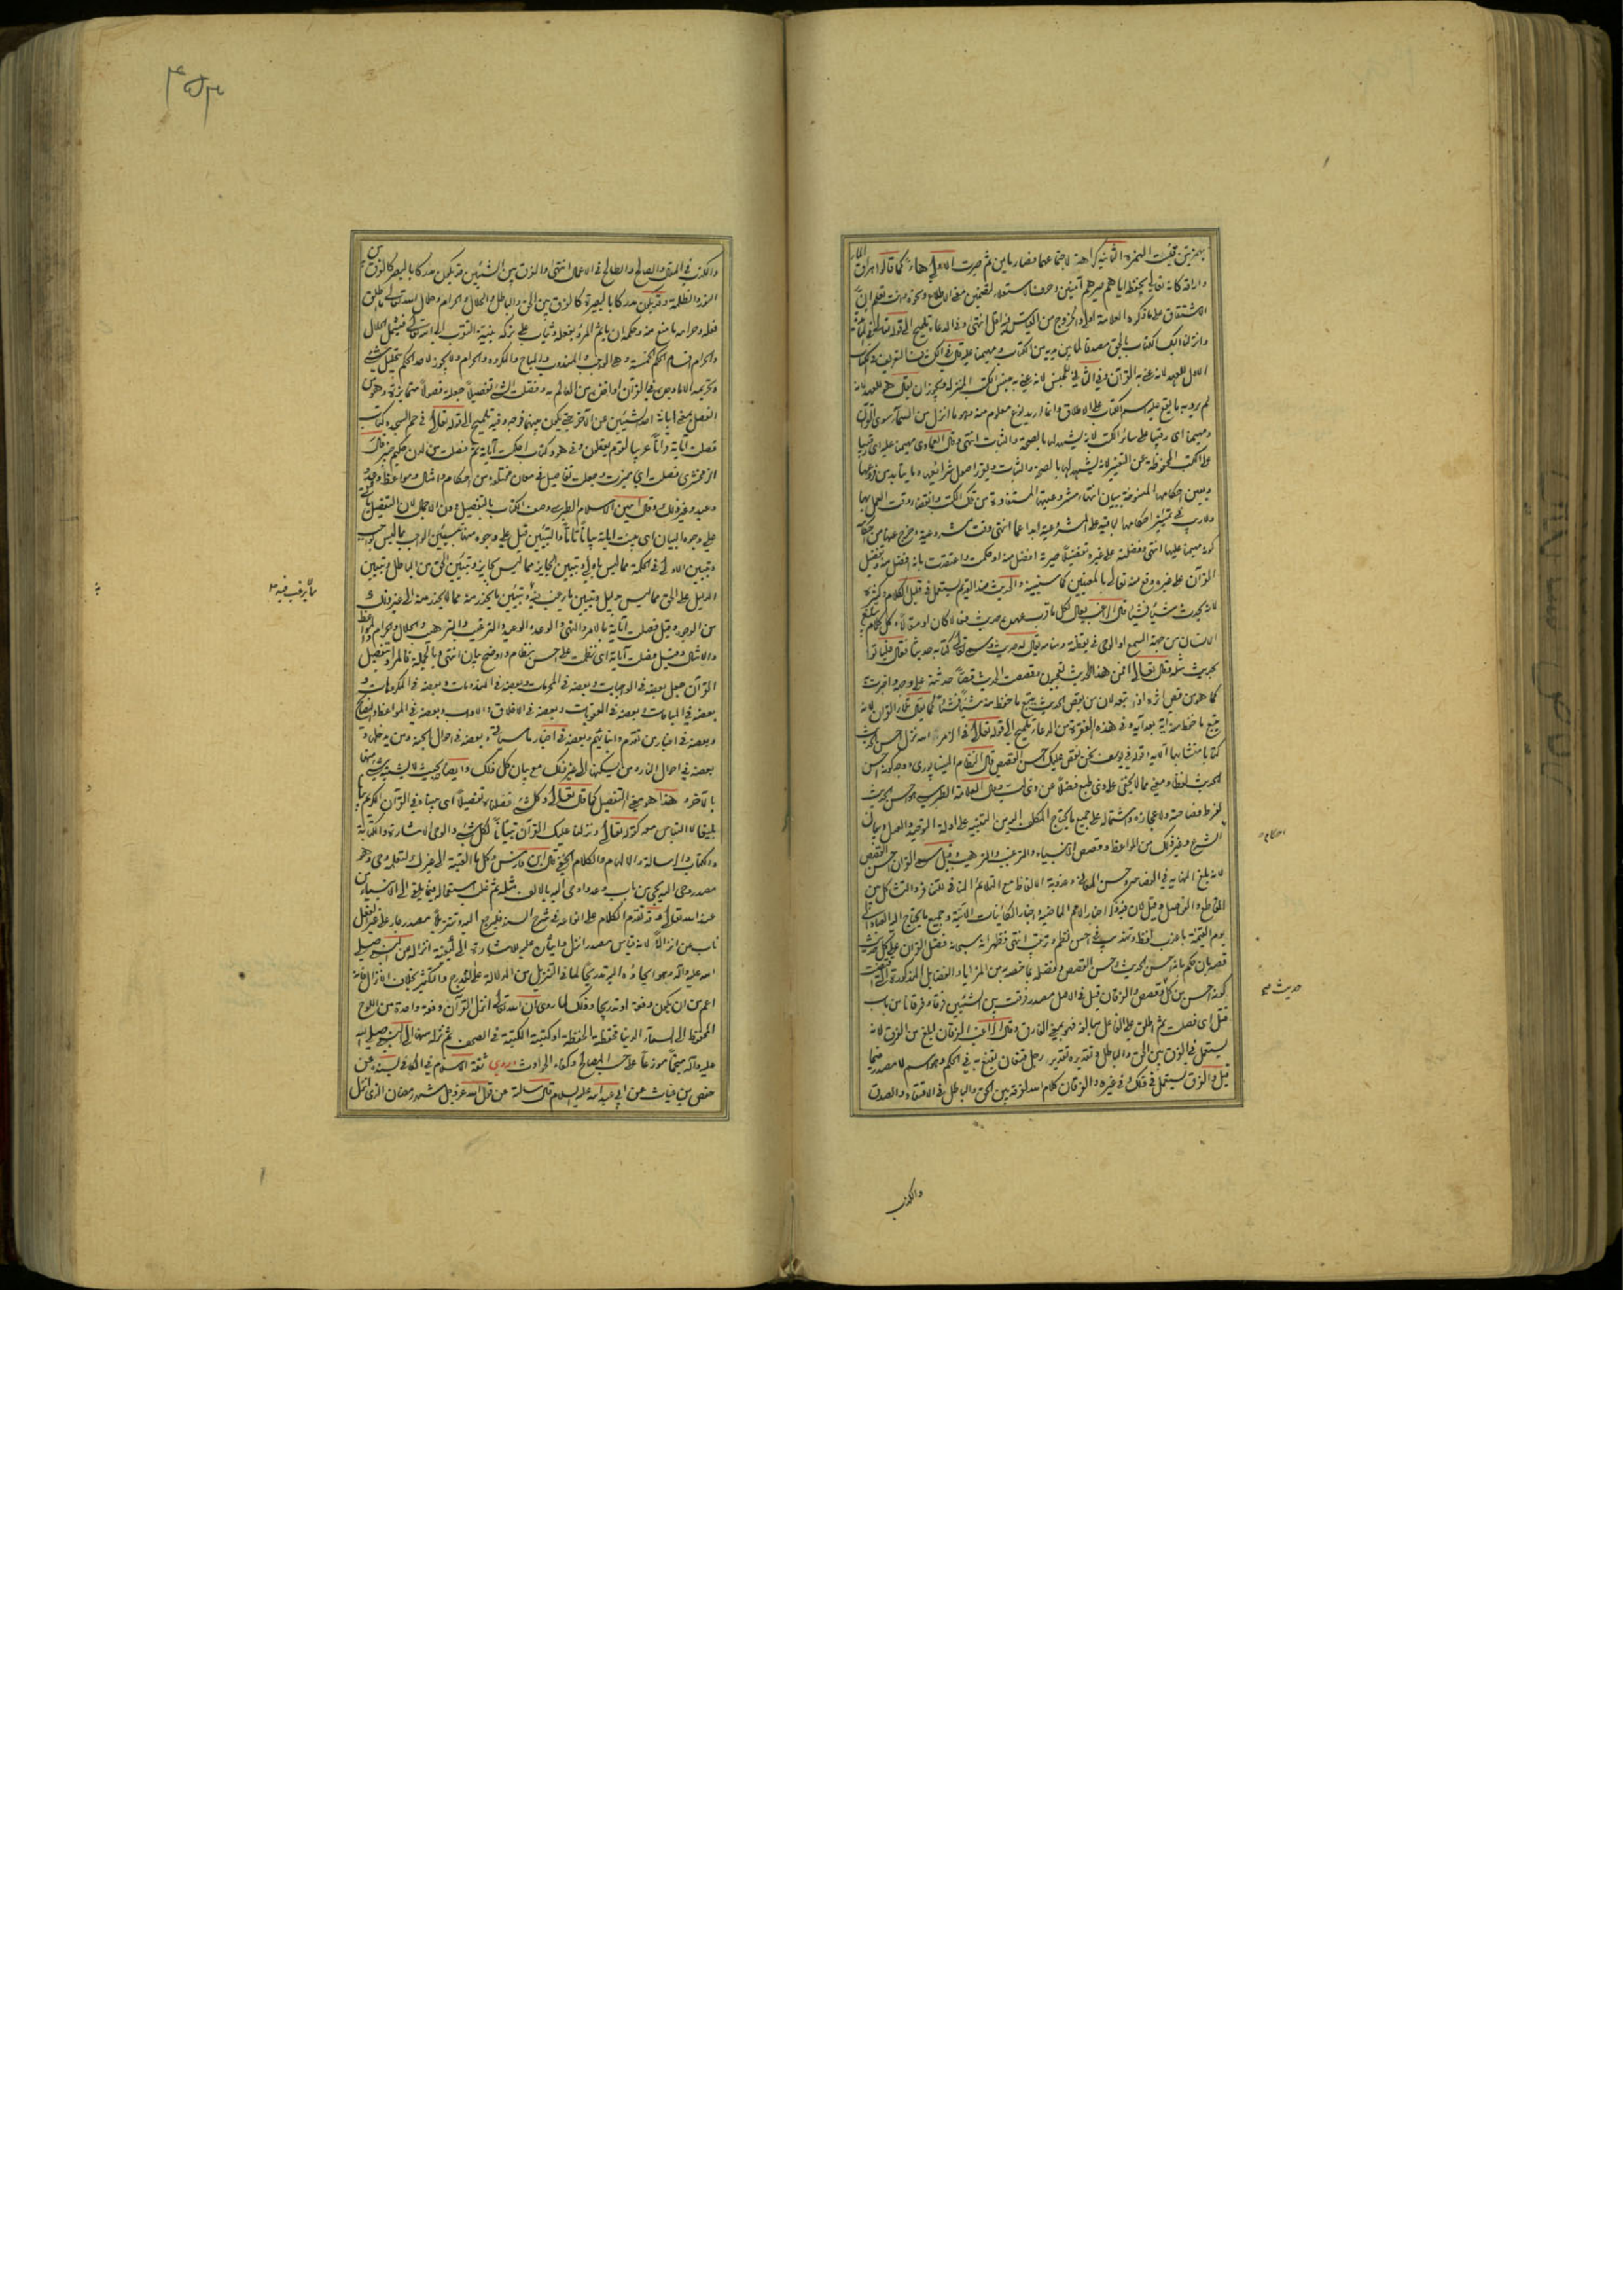 بهمزتين قلبت الهمزة الثانية كراهة لاجتماعهما فصار مأيمن ثم صيرت الاولى هاء كما قالوا هراق الماء
واراقه كانه تعالى بحفظه اياهم صيرهم آمنين وحرف الاستعلاء لتضمين معنى الاطلاع ونحوه وانت تعلم ان
الاشتقاق على ما ذكره العلامة اولى انتهى وفى الدعاء تلميح الى قوله تعالى فى المائدة
وانزلنا اليك الكتاب بالحق مصدقا لما بين يديه من الكتاب ومهيمنا عليه قال فى الكشاف التعريف فى الكتاب
الاول للعهد لانه عنى به القرآن وفى الثانى للجنس لانه عنى به جنس الكتب المنزلة ويجوز ان يقال هو للعهد لانه
لم يرد به ما يقع عليه اسم الكتاب على الاطلاق وانما اريد نوع معلوم منه وهو ما انزل من السماء سوى القرآن
ومهيمنا اى رقيبا على سائر الكتب لانه يشهد لها بالصحة والثبات انتهى وقال العمادى مهيمنا عليه اى رقيبا
على الكتب المحفوظة عن التغيير لانه يشهد لها بالصحة والثبات ويقرر اصول شرائعها وما يتأبد من فروعها
ويعين احكامها المنسوخة ببيان انتهاء مشروعيتها المستفادة من تلك الكتب وانقضاء وقت العمل بها
ولا ريب فى تمييز احكامها الباقية على المشروعية ابدا عما انتهى وقت مشروعيته وخرج عنها من احكام
كونه مهيمنا عليها انتهى وفضلته على غيره تفضيلا صيرته افضل منه او حكمت واعتقدت بانه افضل منه وتفضيل
القرآن على غيره وقع منه تعالى بالمعنيين
لانه يحدث شيئا فشيئا قال الراغب يقال لكل ما قرب عهده حديث فعالا كان او مقالا وكل كلام يبلغ
الانسان من جهة السمع او الوحى فى يقظته ومنامه يقال له حديث وسمى تعالى كتابه حديثا فقال فليأتوا
بحديث مثله وقال تعالى افمن هذا الحديث تعجبون وقصصت الحديث قصصا حدثته على وجهه
كما هو من قص اثره اذا تبعه لان من يقص الحديث يتبع ما حفظ منه شيئا فشيئا كما يقال تلا القرآن لانه
يتبع ما حفظ منه آية بعد آية وفى هذه الفقرة من الدعاء تلميح الى قوله تعالى فى الزمر الله نزل احسن الحديث
كتابا متشابها الآية وقوله فى يوسف نحن نقص عليك احسن القصص قال النظام النيسابورى وجه كونه احسن
الحديث لفظا ومعنى مما لا يخفى على ذى طبع فضلا عن ذى لب وقال العلامة الطبرسى هو احسن الحديث
لفرط فصاحته ولاعجازه واشتماله على جميع ما يحتاج المكلف اليه من التنبيه على ادلة التوحيد والعدل وبيان
الشرع وغير ذلك من المواعظ وقصص الانبياء والترغيب والترهيب وقيل سمى القرآن احسن القصص
لانه بلغ النهاية فى الفصاحة وحسن المعانى وعذوبة الالفاظ مع التلائم المنافى للتنافر والتشاكل بين
المقاطع والفواصل وقيل لان فيه ذكر اخبار الامم الماضية واخبار الكائنات الآتية وجميع ما يحتاج اليه العباد الى
يوم القيمة باعذب لفظ وتهذيب فى احسن نظم وترتيب انتهى فظهر انه سبحانه فضل القرآن على كل حديث
قصه بان حكم بانه احسن الحديث واحسن القصص وفضله بما خصه به من المزايا والفضائل المذكورة
كونه احسن من كل قصص والفرقان قيل فى الاصل مصدر فرقت بين الشيئين فرقا وفرقانا من باب
قتل اى فصلت ثم اطلق على الفاعل مبالغة فهو بمعنى الفارق وقال الراغب الفرقان ابلغ من الفرق لانه
يستعمل فى الفرق بين الحق والباطل وتقديره تقدير رجل قنعان يقنع به فى الحكم وهو اسم لا مصدر فيما
قيل والفرق يستعمل فى ذلك وفى غيره والفرقان كلام الله لفرقه بين الحق والباطل فى الاعتقاد والصدق
والكذب
احكام
حديث
والكذب فى المقال والصالح والطالح فى الاعمال انتهى والفرق بين الشيئين قد يكون مدركا بالبصر كالفرق بين
النور والظلمة وقد يكون مدركا بالبصيرة كالفرق بين الحق والباطل والحلال والحرام وحلال الله تعالى ما اطلق
فعله وحرامه ما منع منه وحكمه ان يأثم المرء بفعله ويثاب على تركه بنية التقرب الى الله تعالى فيشمل الحلال
والحرام اقسام الحكم الخمسة وهى الواجب والمندوب والمباح والمكروه والحرام ولا يجوز لاحد الحكم بتحليل شئ
وتحريمه الا ما وجده فى القرآن او اخذ من العالم به وفصلت الشئ تفصيلا جعلته فصولا متمايزة وهو من
الفصل بمعنى ابانة احد الشيئين عن الآخر حتى يكون بينهما فرجة وفيه تلميح الى قوله تعالى فى حم السجدة كتاب
فصلت آياته قرآنا عربيا لقوم يعلمون وفى هود كتاب احكمت آياته ثم فصلت من لدن حكيم خبير قال
الزمخشرى فصلت اى ميزت وجعلت تفاصيل فى معان مختلفة من احكام وامثال ومواعظ ووعد
ووعيد وغير ذلك وقال امين الاسلام الطبرسى وصف الكتاب بالتفصيل دون الاجمال لان التفصيل يأتى
على وجوه البيان اى بينت آياته بيانا تاما والتبيين قيل على وجوه منها تبيين الواجب مما ليس بواجب
وتبيين الاولى فى الحكمة مما ليس باولى وتبيين الجائز مما ليس بجائز وتبيين الحق من الباطل وتبيين
الدليل على الحق مما ليس بدليل وتبيين ما يرغب فيه وتبيين ما يحذر منه مما لا يحذر منه الى غير ذلك
من الوجوه وقيل فصلت آياته بالامر والنهى والوعد والوعيد والترغيب والترهيب والحلال والحرام والمواعظ
والامثال وقيل فصلت آياته اى نظمت على احسن نظام واوضح بيان انتهى وبالجملة فالمراد بتفصيل
القرآن جعل بعضه فى الواجبات وبعضه فى المحرمات وبعضه فى المندوبات وبعضه فى المكروهات و
بعضه فى المباحات وبعضه فى العقوبات وبعضه فى الاخلاق والآداب وبعضه فى المواعظ والنصائح
وبعضه فى اخبار من تقدم وانبائهم وبعضه فى اخبار ما سيأتى وبعضه فى احوال الجنة ومن يدخلها و
بعضه فى احوال النار ومن يسكنها الى غير ذلك مع بيان كل ذلك وايضاحه بحيث لا يشتبه شئ منها
بالآخر هذا هو معنى التفصيل كما قال تعالى وكل شئ فصلناه تفصيلا اى بيناه فى القرآن الكريم بيانا
بليغا لا التباس معه كقوله تعالى ونزلنا عليك القرآن تبيانا لكل شئ والوحى الاشارة والكتابة
والكتاب والرسالة والالهام والكلام الخفى قال ابن فارس وكل ما القيته الى غيرك لتعلمه وحى وهو
مصدر وحى اليه يحى من باب وعد واوحى اليه بالالف مثله ثم غلب استعماله فيما يلقى الى الانبياء من
عند الله تعالى وقد تقدم الكلام على انواعه فى شرح السند فليرجع اليه وتنزيلا مصدر جار على غير الفعل
ناب عن انزالا لانه قياس مصدر انزل واتيان عليه للاشارة الى كيفية انزاله على النبى صلى
الله عليه وآله وهو ايحاؤه اليه تدريجا لما فى التنزيل من الدلالة على التدريج والتكثير بخلاف الانزال فانه
اعم من ان يكون دفعة او تدريجا وذلك لما روى ان الله تعالى انزل القرآن دفعة واحدة من اللوح
المحفوظ الى السماء الدنيا فحفظته الحفظة او كتبته الكتبة فى الصحف ثم نزله منها الى النبى صلى الله
عليه وآله منجما موزعا على حسب المصالح وكفاء الحوادث وروى ثقة الاسلام فى الكافى بسنده عن
حفص بن غياث عن ابى عبد الله عليه السلام قال سالته عن قول الله عز وجل شهر رمضان الذى انزل
مما لا يرغب فيه